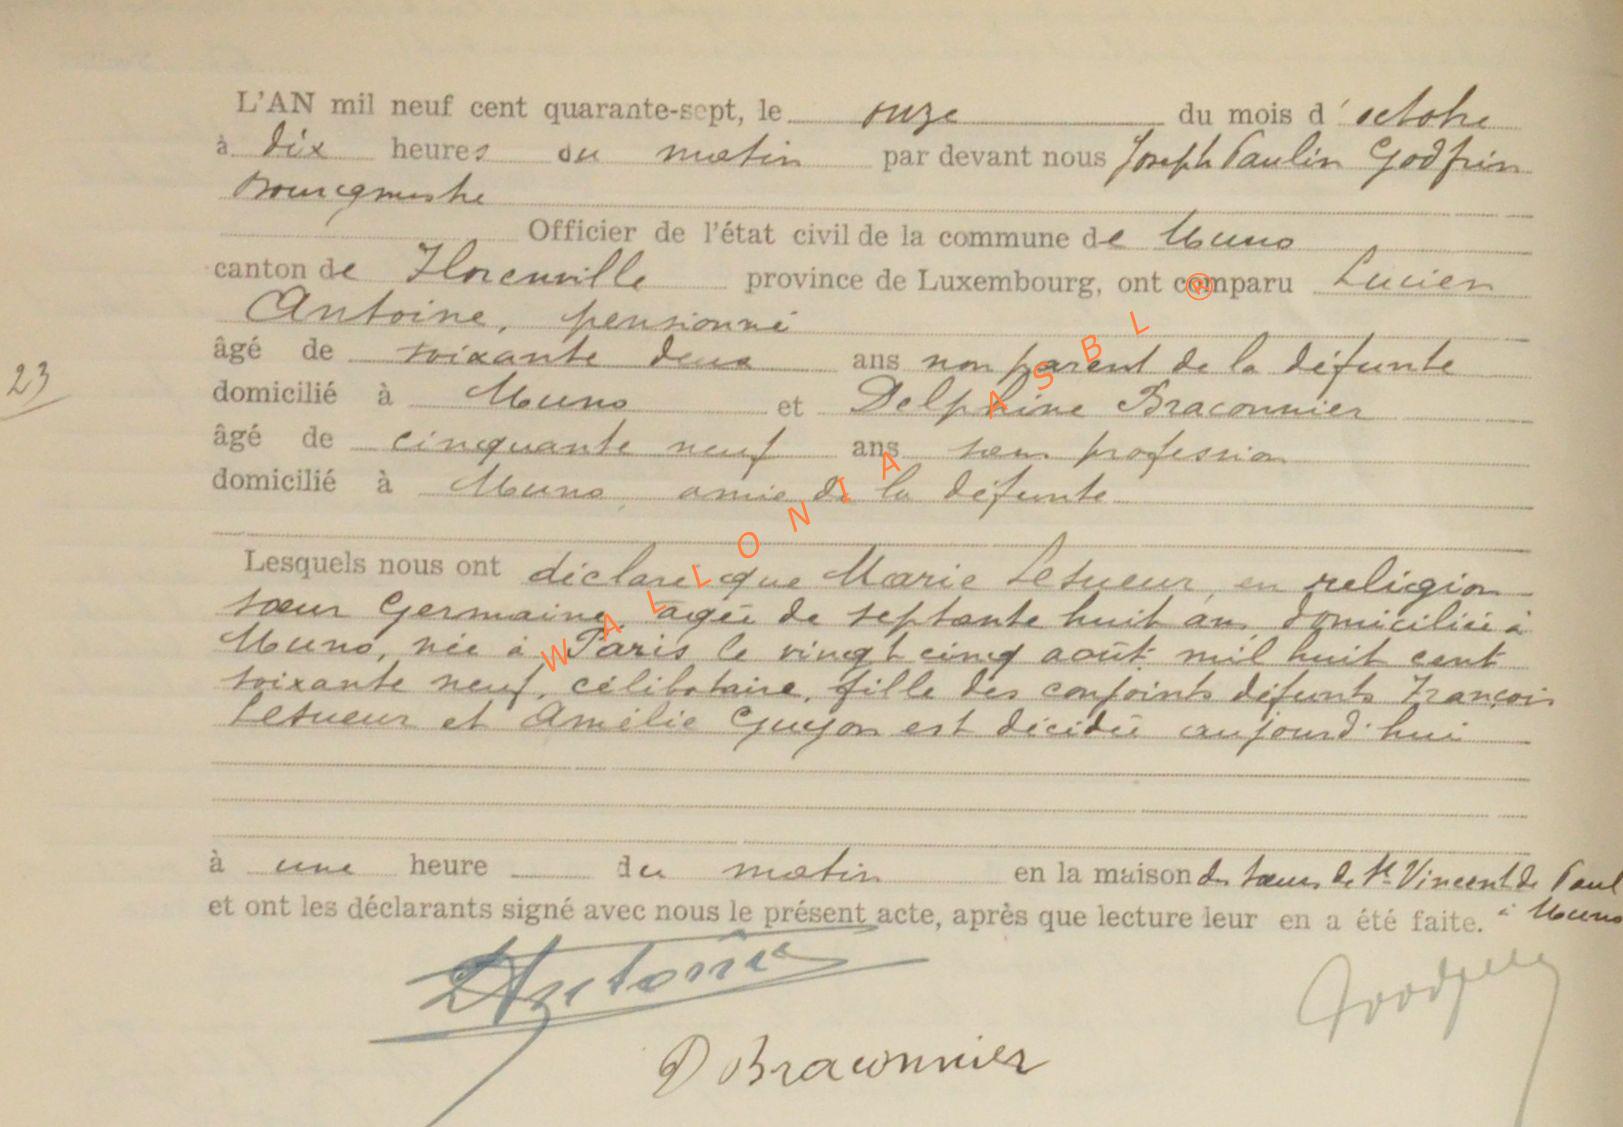 L'AN mil neuf cent quarante-sept, le onze du mois d'octobre
à dix heures du matin par devant nous Joseph Paulin Godfrin
Bourgmestre
Officier de l'état civil de la commune de Muno
canton de Florenville province de Luxembourg, ont comparu Lucien
Antoine, pensionné
âgé de soixante deux ans non parent de la défunte
23
domicilié à Muno et Delphine Braconnier
âgé de cinquante neuf ans sans profession
domicilié à Muno, amie de la défunte
Lesquels nous ont déclaré que Marie Lesueur, en religion
sœur Germaine, agée de septante huit ans, domiciliée à
Muno, née à Paris le vingt cinq août mil huit cent
soixante neuf, célibataire, fille des conjoints défunts François
Lesueur et Amélie Guyon est décédée aujourd'hui
à une heure du matin en la maison des sœurs de St Vincent de Paul
et ont les déclarants signé avec nous le présent acte, après que lecture leur en a été faite. à Muno
LAntoine
Godfrin
D Braconnier
WALLONIA ASBL ®